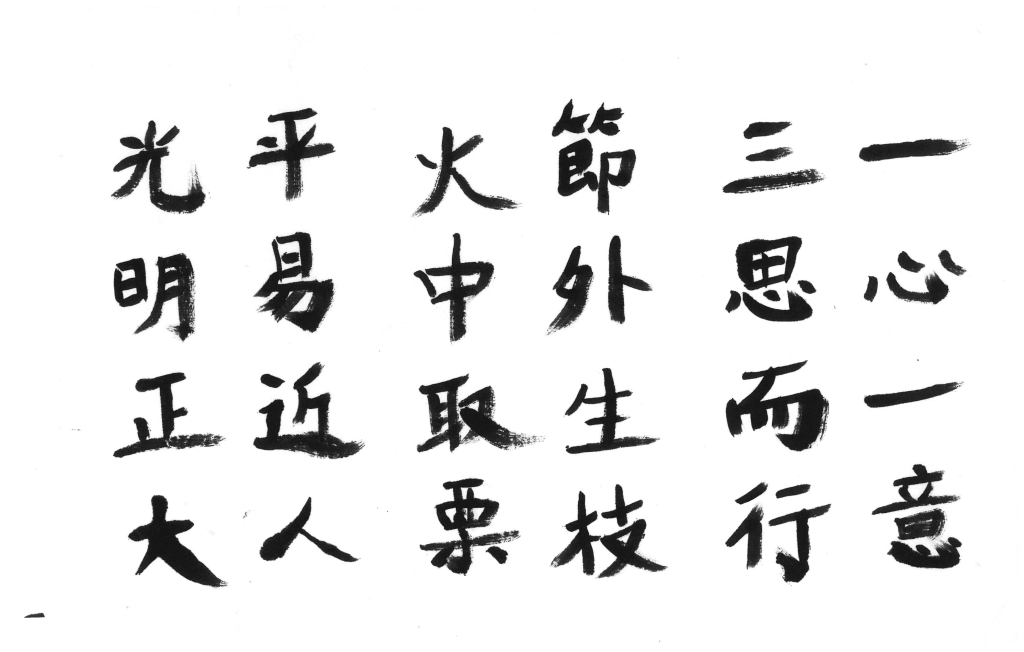 一心一意
三思而行
節外生枝
火中取栗
平易近人
光明正大